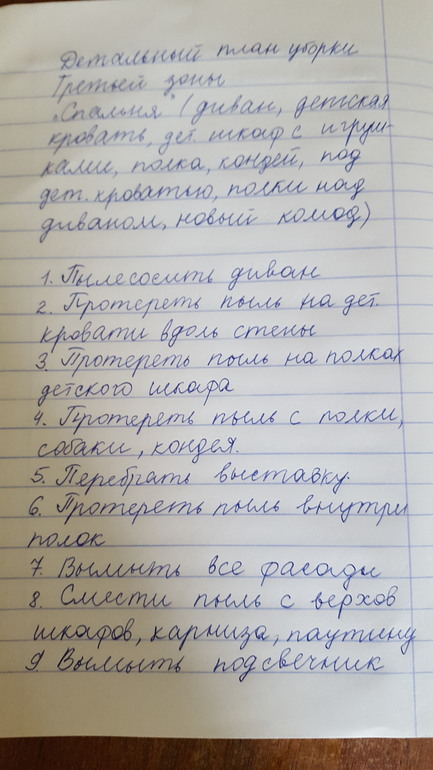 Детальный план уборки
Третьей зоны
"Спальня" (диван, детская
кровать, дет. шкаф с игруш-
ками, полка, кондей, под
дет. кроватью, полки над
диваном, новый комод)
1. Пылесосить диван
2. Протереть пыль на дет.
кровати вдоль стены
3. Протереть пыль на полках
детского шкафа
4. Протереть пыль с полки,
собаки, кондея.
5. Перебрать выставку.
6. Протереть пыль внутри
полок
7. Вымыть все фасады
8. Смести пыль с верхов
шкафов, карниза, паутину
9. Вымыть подсвечник